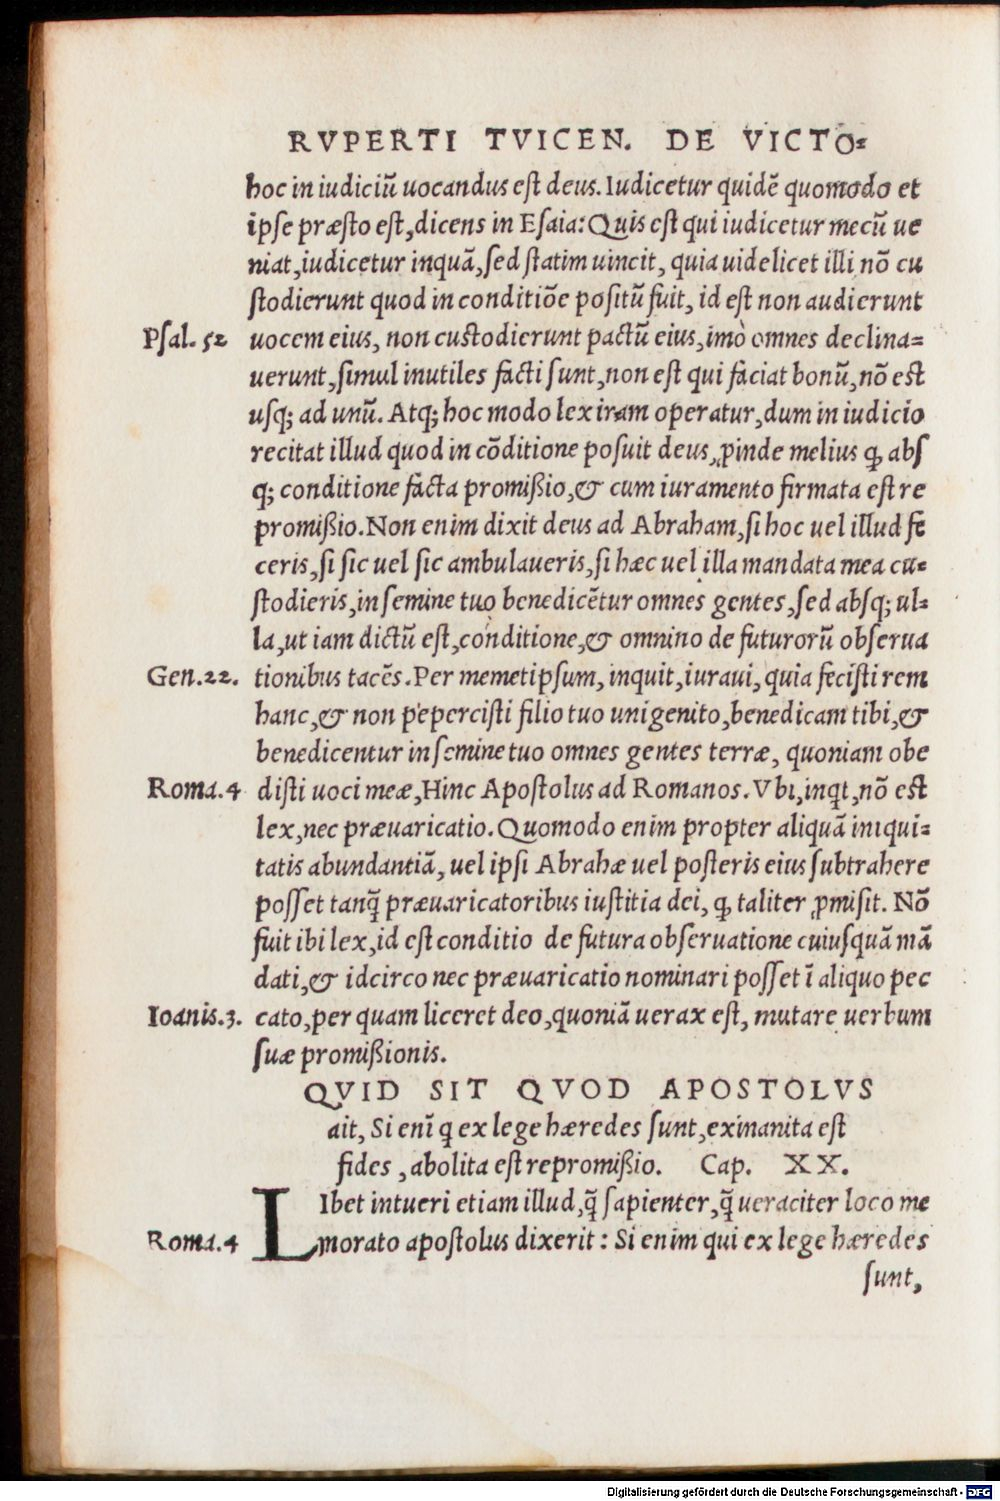 RVPERTI TVICEN. DE VICTO⸗
hoc in iudiciũ uocandus eſt deus. Iudicetur quidẽ quomodo et
ipſe præſto eſt, dicens in Eſaia: Quis eſt qui iudicetur mecũ ue
niat, iudicetur inquã, ſed ſtatim uincit, quia uidelicet illi nõ cu
ſtodierunt quod in conditiõe poſitũ fuit, id eſt non audierunt
Pſal. 52 uocem eius, non cuſtodierunt pactũ eius, imò omnes declina⸗
uerunt, ſimul inutiles facti ſunt, non eſt qui faciat bonũ, nõ eſt
uſq; ad unũ. Atq; hoc modo lex iram operatur, dum in iudicio
recitat illud quod in cõditione poſuit deus, ꝓinde melius ꝙ abſ
q; conditione facta promißio, & cum iuramento firmata eſt re
promißio. Non enim dixit deus ad Abraham, ſi hoc uel illud fe
ceris, ſi ſic uel ſic ambulaueris, ſi hæc uel illa mandata mea cu⸗
ſtodieris, in ſemine tuo benedicẽtur omnes gentes, ſed abſq; ul⸗
la, ut iam dictũ eſt, conditione, & omnino de futurorũ obſerua
Gen. 22. tionibus tacẽs. Per memetipſum, inquit, iuraui, quia feciſti rem
hanc, & non peperciſti filio tuo unigenito, benedicam tibi, &
benedicentur in ſemine tuo omnes gentes terræ, quoniam obe
Roma. 4 diſti uoci meæ, Hinc Apoſtolus ad Romanos. Vbi, inqt, nõ eſt
lex, nec præuaricatio. Quomodo enim propter aliquã iniqui⸗
tatis abundantiã, uel ipſi Abrahæ uel poſteris eius ſubtrahere
poſſet tanq̃ præuaricatoribus iuſtitia dei, ꝙ taliter ꝓmiſit. Nõ
fuit ibi lex, id eſt conditio de futura obſeruatione cuiuſquã mã
dati, & idcirco nec præuaricatio nominari poſſet ĩ aliquo pec
Ioanis. 3. cato, per quam liceret deo, quoniã uerax eſt, mutare uerbum
ſuæ promißionis.
QVID SIT QVOD APOSTOLVS
ait, Si enĩ q ex lege hæredes ſunt, exinanita eſt
fides, abolita eſt repromißio. Cap. XX.
LIbet intueri etiam illud, q̃ ſapienter, q̃ ueraciter loco me
Roma. 4 morato apoſtolus dixerit: Si enim qui ex lege hæredes
ſunt,
Digitalisierung gefördert durch die Deutsche Forschungsgemeinschaft - DFG